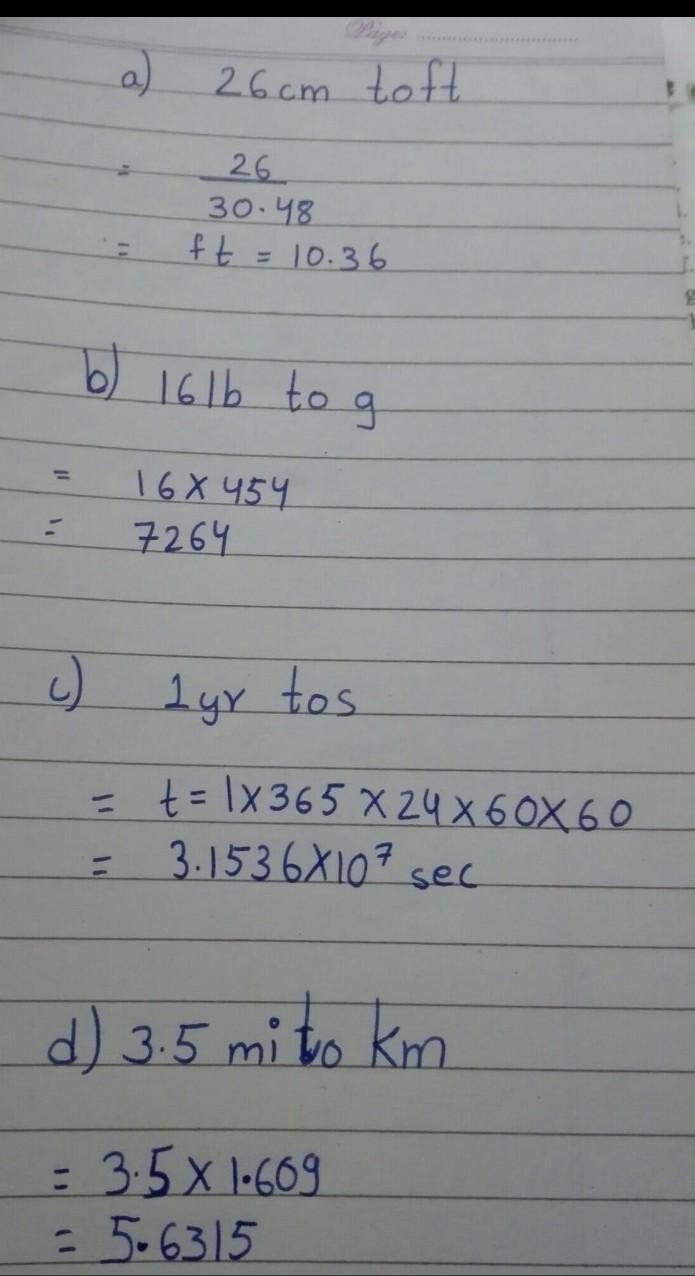 Page: ..............................
a) 26cm to ft
= 26
30.48
= ft = 10.36
b) 16lb to g
= 16 × 454
= 7264
c) 1yr to s
= t = 1×365×24×60×60
= 3.1536×10⁷ sec
d) 3.5 mi to km
= 3.5 × 1.609
= 5.6315